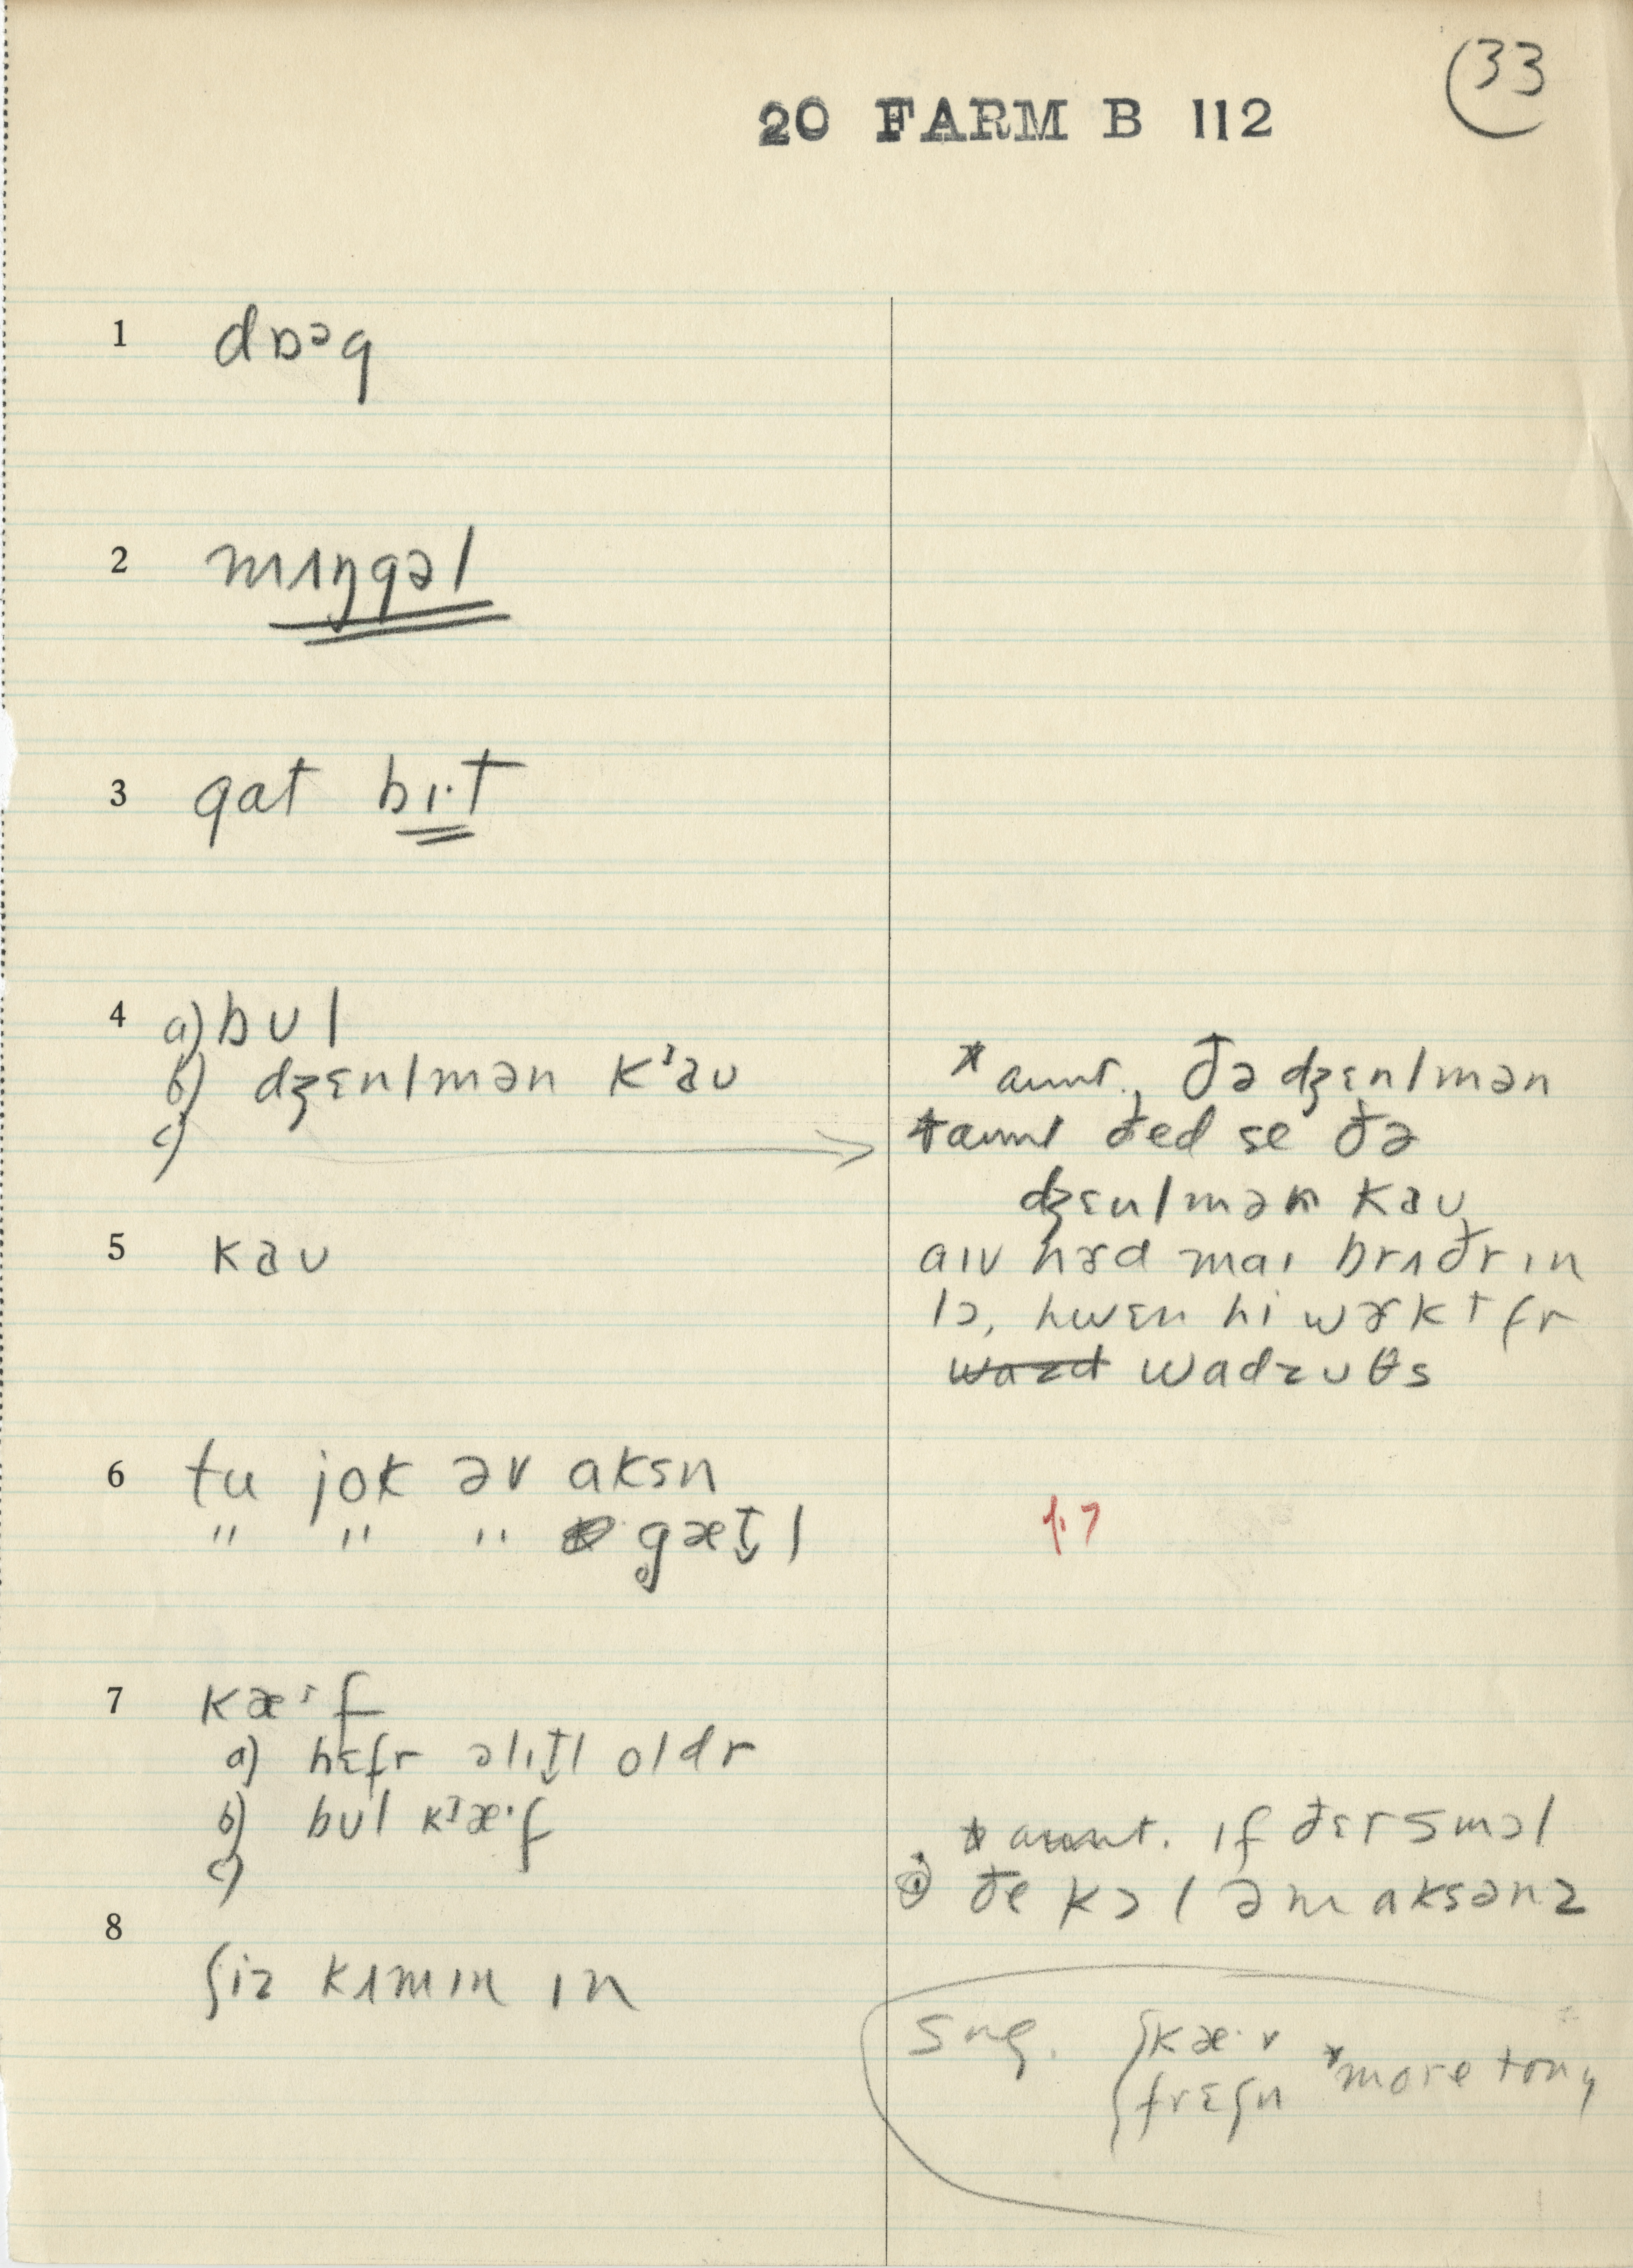 33
20 FARM B 112
1 dɒᵊg
2 mʌŋgəl
3 gat bɪ·t
4 a) bʊl
b) dʒɛnlmən kʼaʊ
c)
* aunt., ðə dʒɛnlmən
aunt ðed se ðə
dʒɛnlmən kaʊ
5 kaʊ
aɪv hɝd maɪ brʌðr ɪn
lɔ, hwɛn hi wɝkt fr
wadzʊθs
6 tu jok əv aksn
" " " gæt̬l
p.7
7 kæ·f
a) hɛfr əlɪt̬l oldr
b) bʊl kᶾæ·f
c)
* aunt. ɪf ðɛr smɔl
ðe kɔl əm aksənz
8 ʃiz kʌmɪn ɪn
sug. kæ·v
frɛʃn
*more